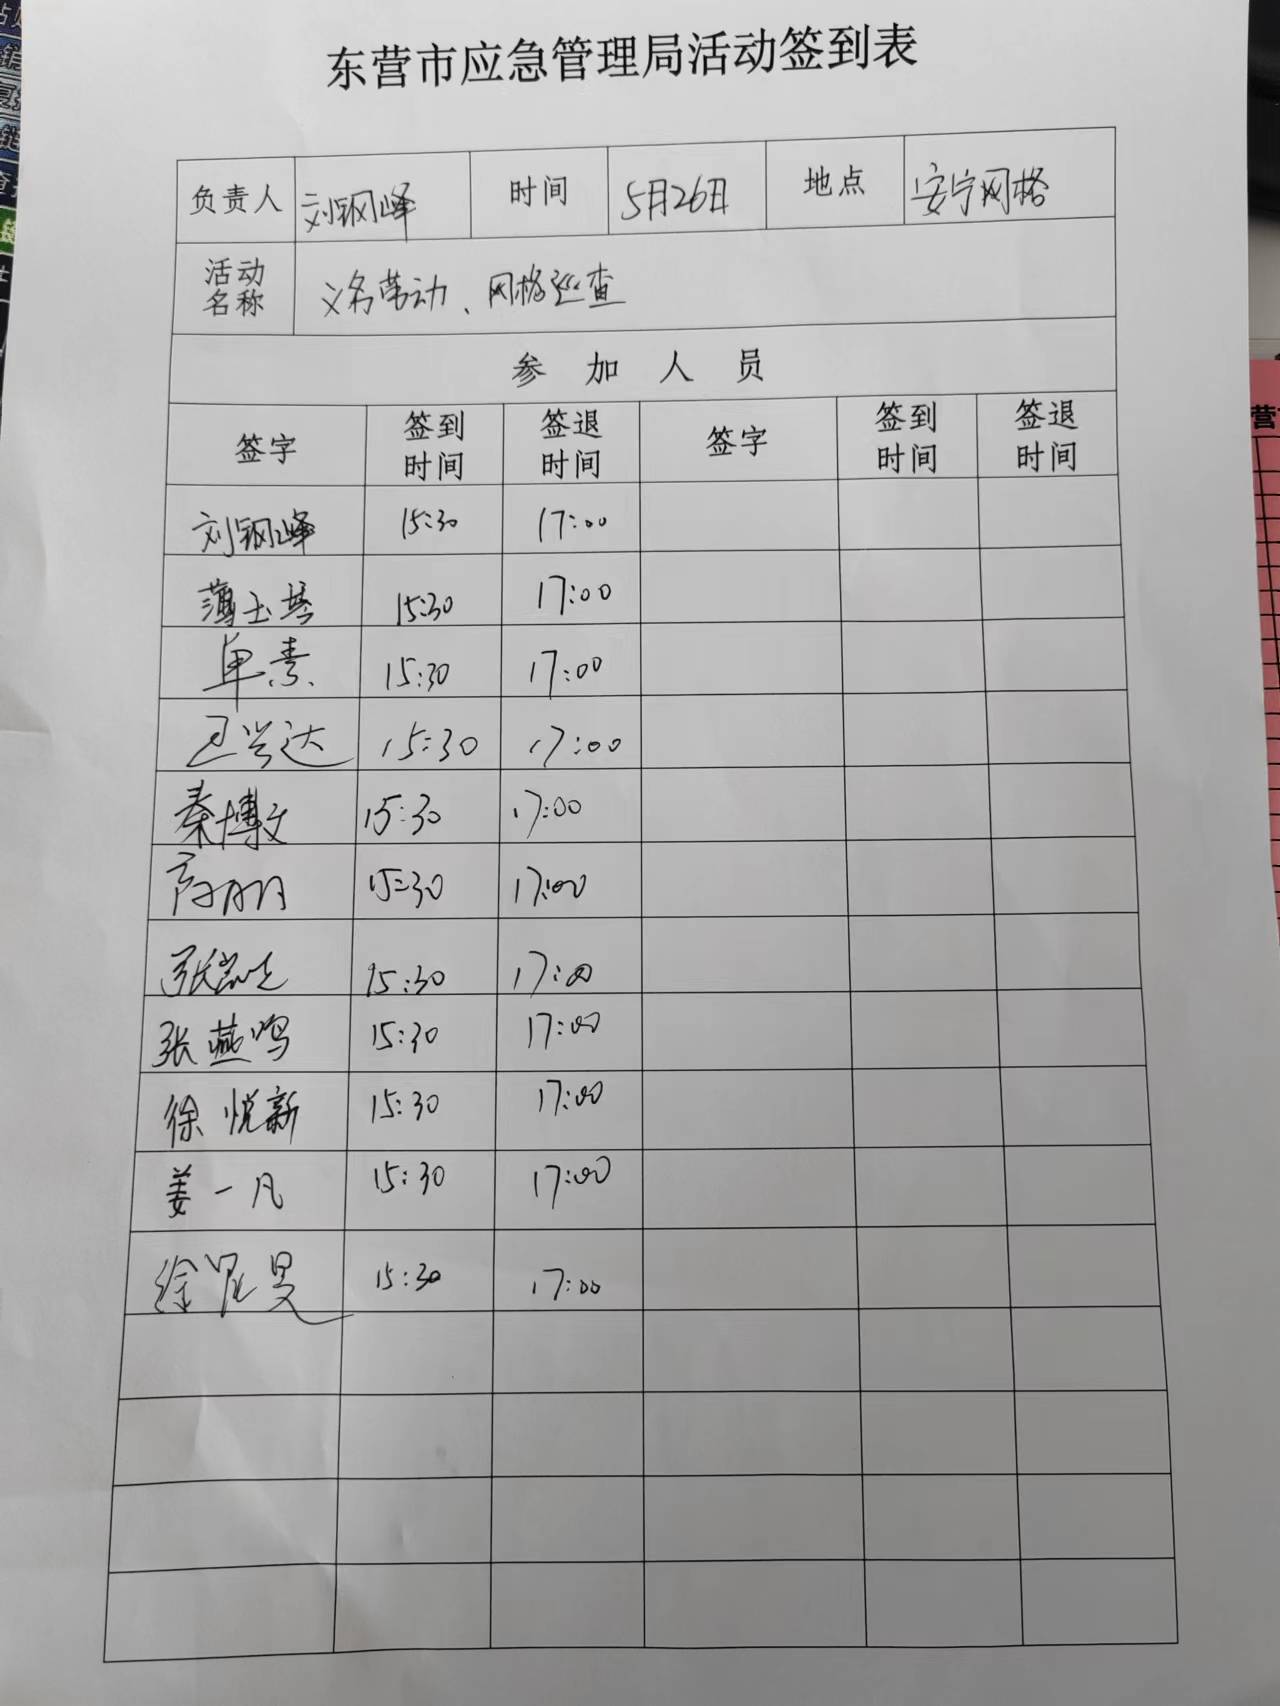 东营市应急管理局活动签到表
负责人 刘钢峰 时间 5月26日 地点 安宁网格
活动名称 义务劳动、网格巡查
参加人员
签字 签到时间 签退时间 签字 签到时间 签退时间
刘钢峰 15:30 17:00
薄玉琴 15:30 17:00
单素 15:30 17:00
15:30 17:00
秦博文 15:30 17:00
15:30 17:00
15:30 17:00
张燕鸣 15:30 17:00
徐悦新 15:30 17:00
姜一凡 15:30 17:00
15:30 17:00
营